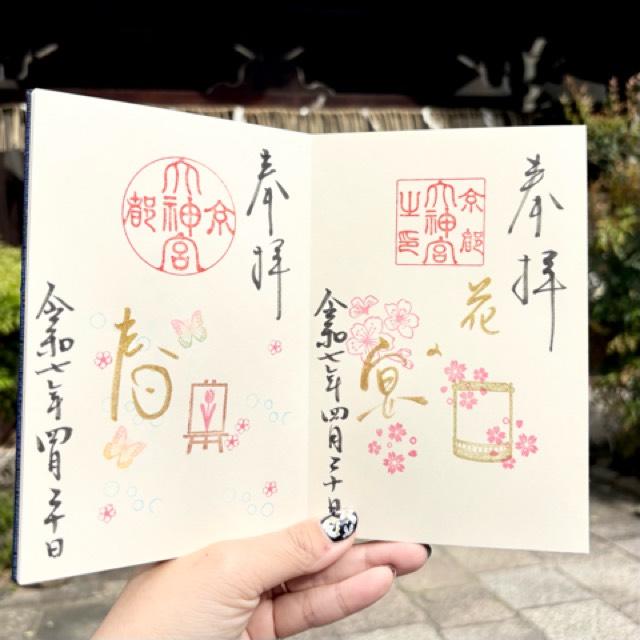 奉拝
京都
大神宮
之印
花の宴
令和七年四月三十日
奉拝
京都大神宮
春
令和七年四月三十日